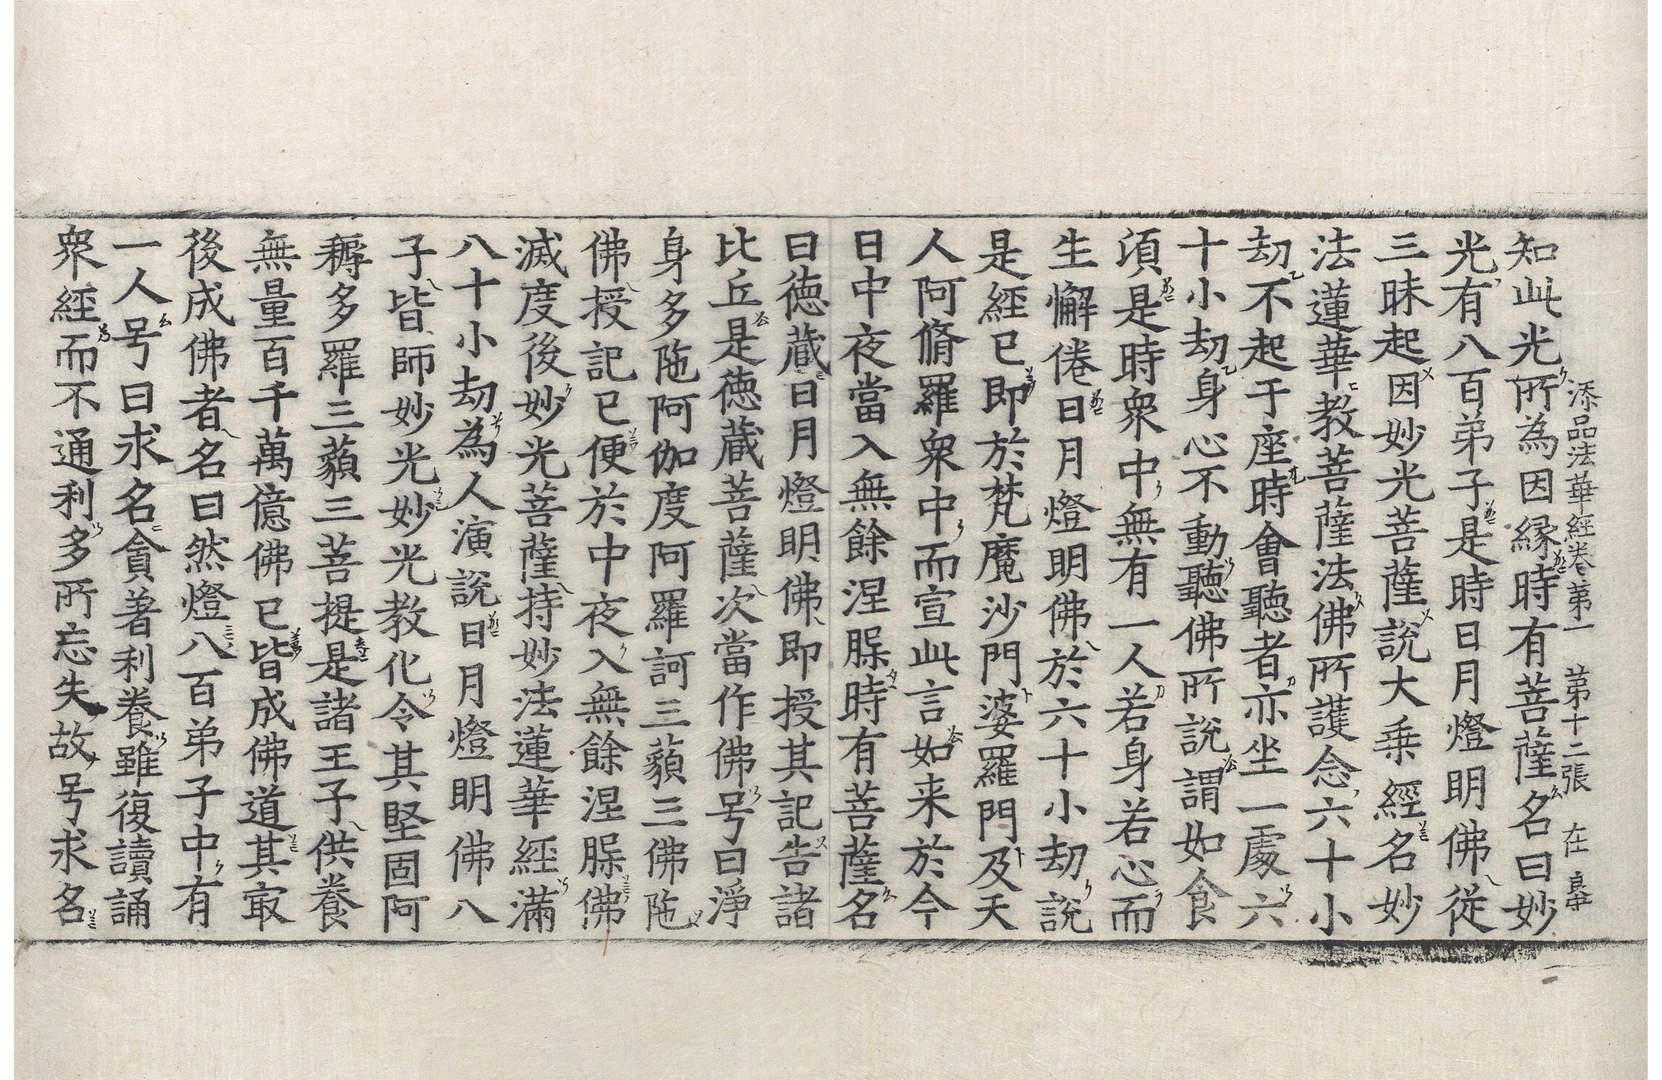 添品法華經卷第一 第十二張 在
知此光所為因縁時有菩薩名曰妙
光有八百弟子是時日月燈明佛從
三昧起因妙光菩薩說大乘經名妙
法蓮華教菩薩法佛所護念六十小
劫不起于座時會聽者亦坐一處六
十小劫身心不動聽佛所說謂如食
頃是時衆中無有一人若身若心而
生懈倦日月燈明佛於六十小劫說
是經已即於梵魔沙門婆羅門及天
人阿脩羅衆中而宣此言如来於今
日中夜當入無餘涅槃時有菩薩名
曰德藏日月燈明佛即授其記告諸
比丘是德藏菩薩次當作佛号曰淨
身多陁阿伽度阿羅訶三藐三佛陁
佛授記已便於中夜入無餘涅槃佛
滅度後妙光菩薩持妙法蓮華經滿
八十小劫為人演說日月燈明佛八
子皆師妙光妙光教化令其堅固阿
耨多羅三藐三菩提是諸王子供養
無量百千萬億佛已皆成佛道其㝡
後成佛者名曰然燈八百弟子中有
一人号曰求名貪著利養雖復讀誦
衆經而不通利多所忘失故号求名